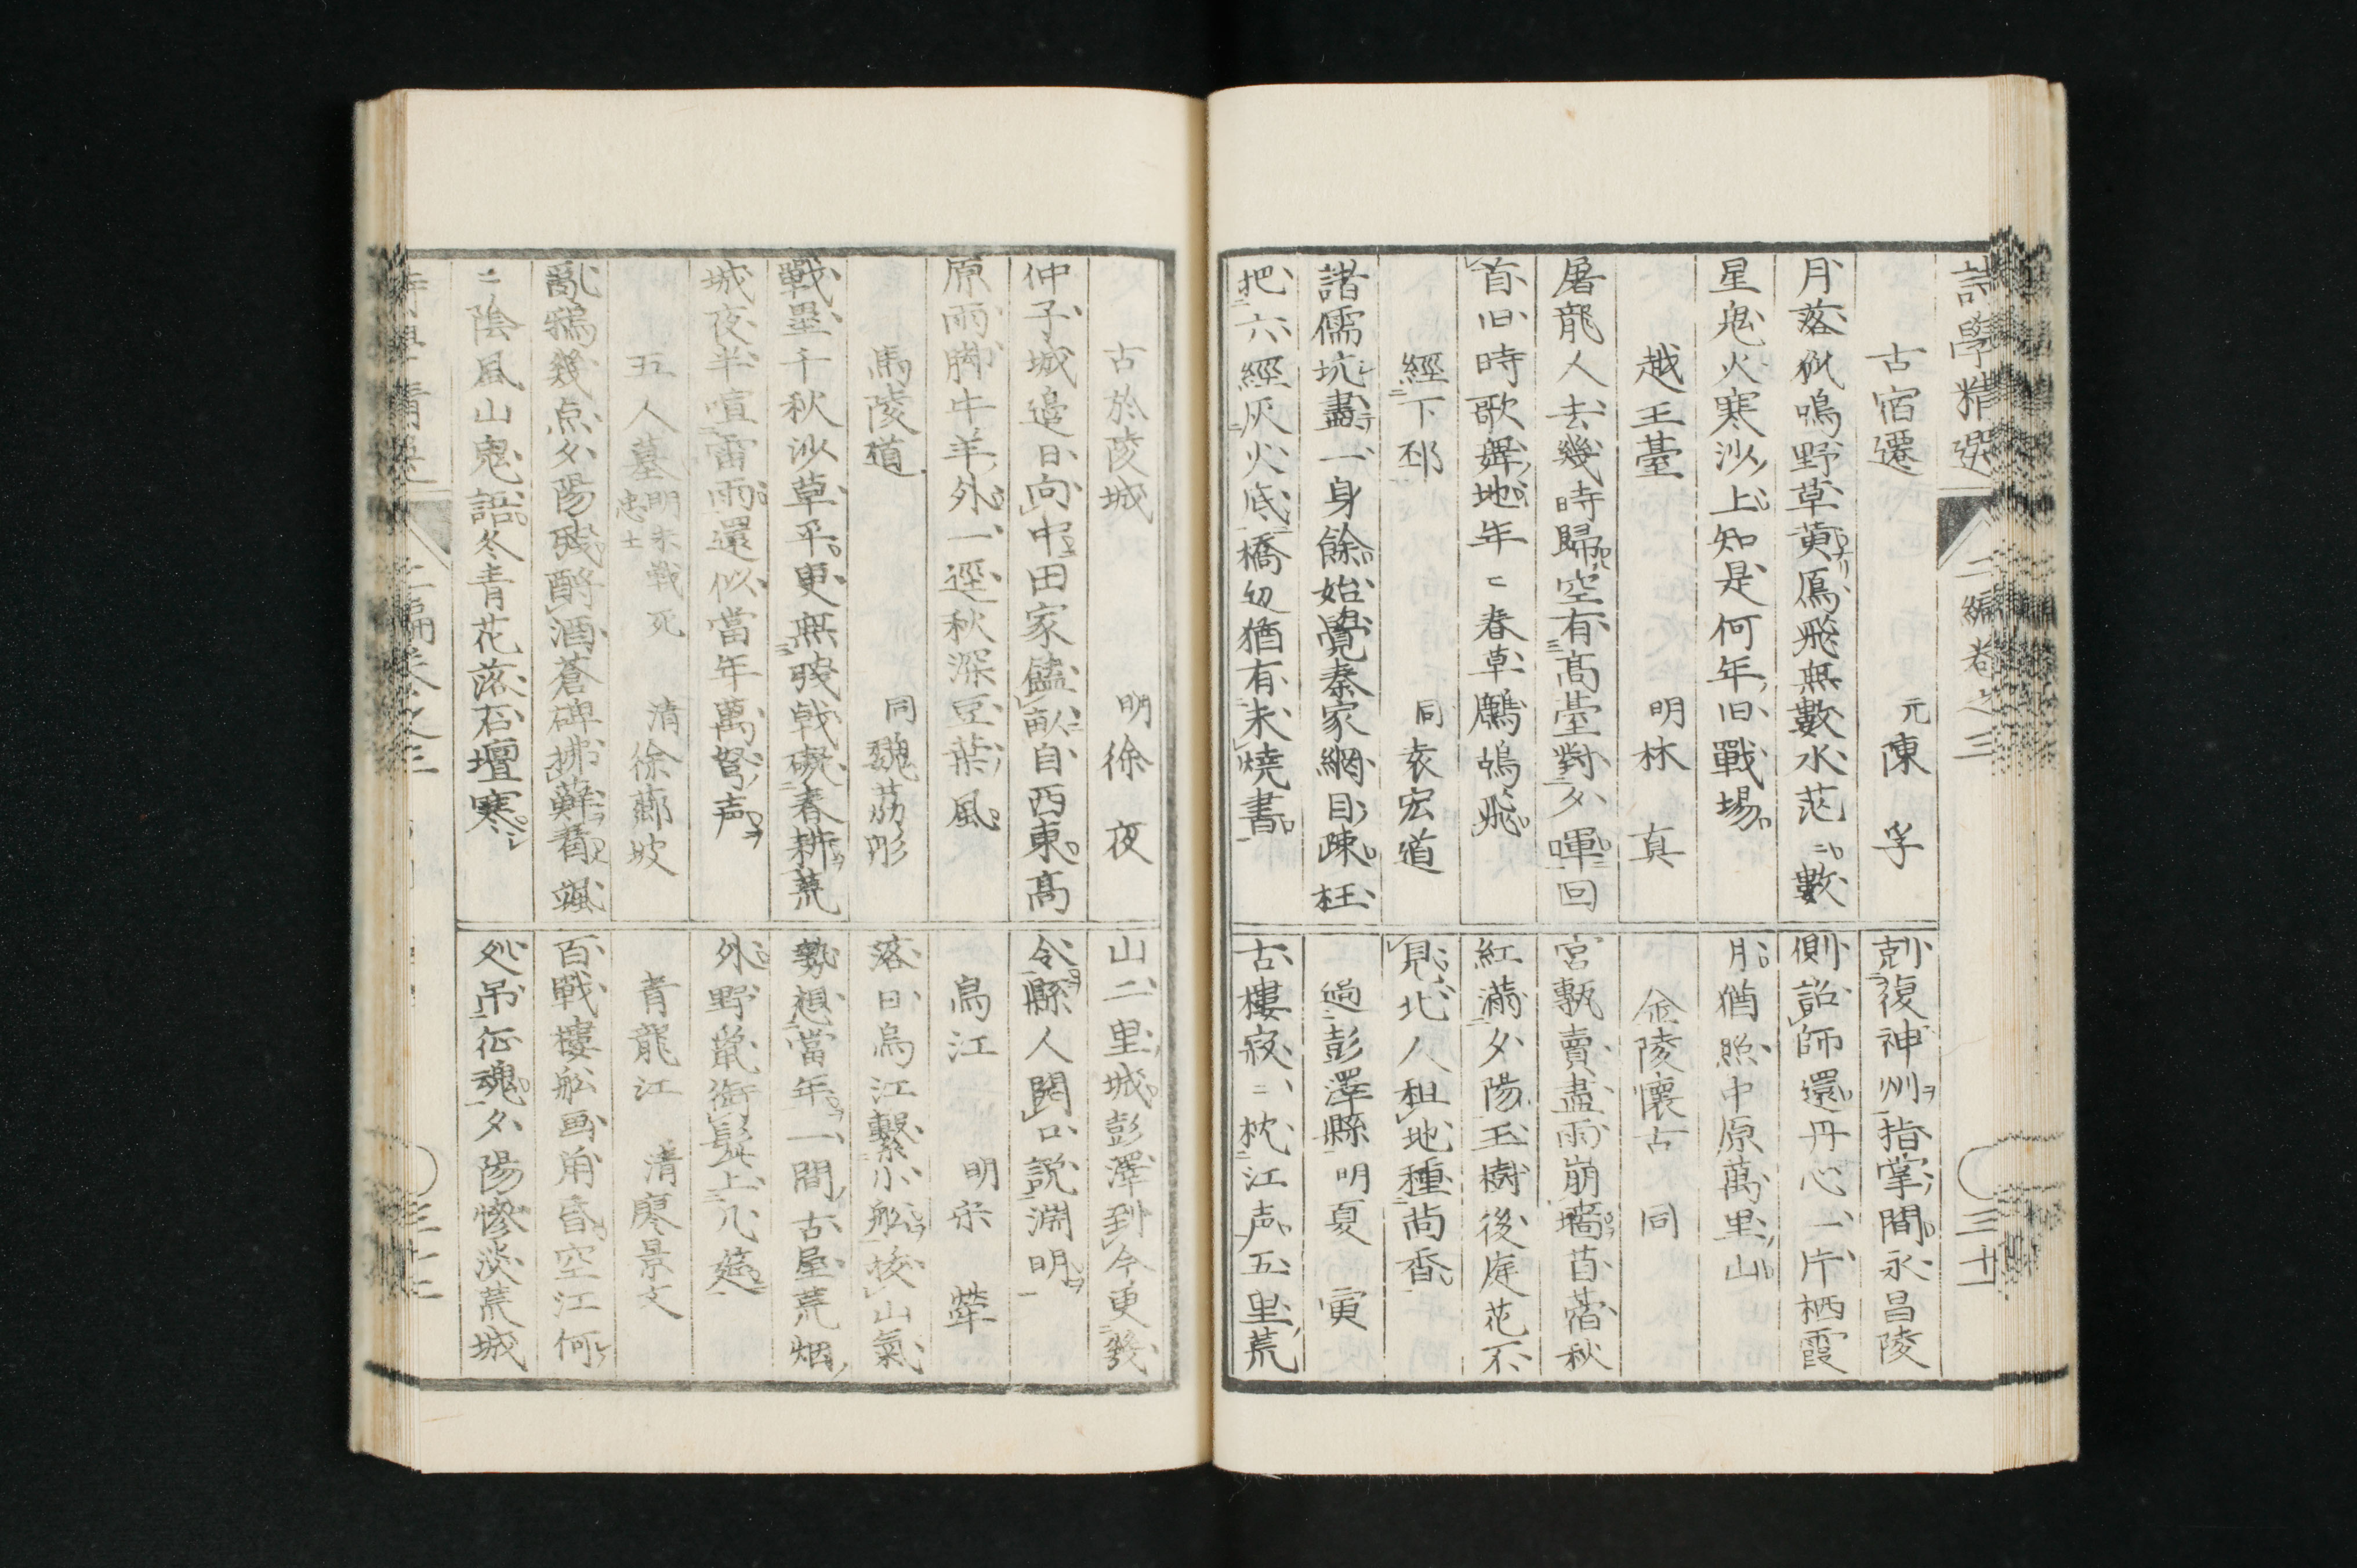 詩學精選 二編卷之三 三十一
古宿遷 元陳孚
月落似鳴野草黄鴈飛無數水茫〻數
星鬼火寒沙上知是何年旧戰場
越王臺 明林真
屠龍人去幾時歸空有高臺對夕暉回
首旧時歌舞地年〻春草鷓鴣飛
經下邳 同袁宏道
諸儒坑盡一身餘始覺秦家網目疎枉
把六經灰火底橋辺猶有未燒書
尅復神州指掌間永昌陵
側詔師還丹心一片栖霞
月猶照中原萬里山
金陵懷古 同
宮甎賣盡雨崩墻苜蓿秋
紅滿夕陽玉樹後庭花不
見北人租地種茼香
過彭澤縣 明夏寅
古樓寂〻枕江声五里荒
古於陵城 明徐夜
仲子城邊日向中田家饁畝自西東高
原雨脚牛羊外一逕秋深豆葉風
馬陵道 同魏荔彤
戰壘千秋沙草平更無殘戟礙春耕荒
城夜半喧雷雨還似當年萬弩声
五人墓 明末戰死忠士 清徐薌坡
亂鴉幾点夕陽殘酹酒蒼碑拂蘚看颯
〻陰風山鬼語冬青花落石壇寒
山二里城彭澤到今更幾
令縣人開口説淵明
烏江 明宋犖
落日烏江繫小舩拔山氣
勢想當年一間古屋荒烟
外野鼠銜髭上几筵
青龍江 清廖景文
百戰樓舩画角昏空江何
処吊征魂夕陽慘淡荒城
詩學精選 二編卷之三 三十二